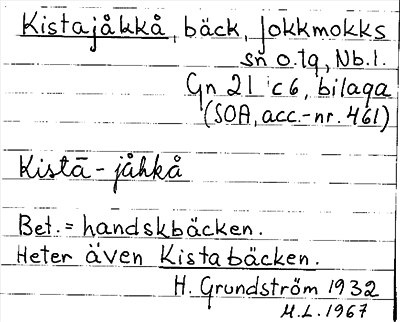 Kistajåkkå, bäck, Jokkmokks
sn o. tg, Nb. l.
Gn 21 c6, bilaga
(SOA, acc.-nr. 461)
Kistā - jåhkå
Bet. = handskbäcken.
Heter även Kistabäcken.
H. Grundström 1932
M.L. 1967